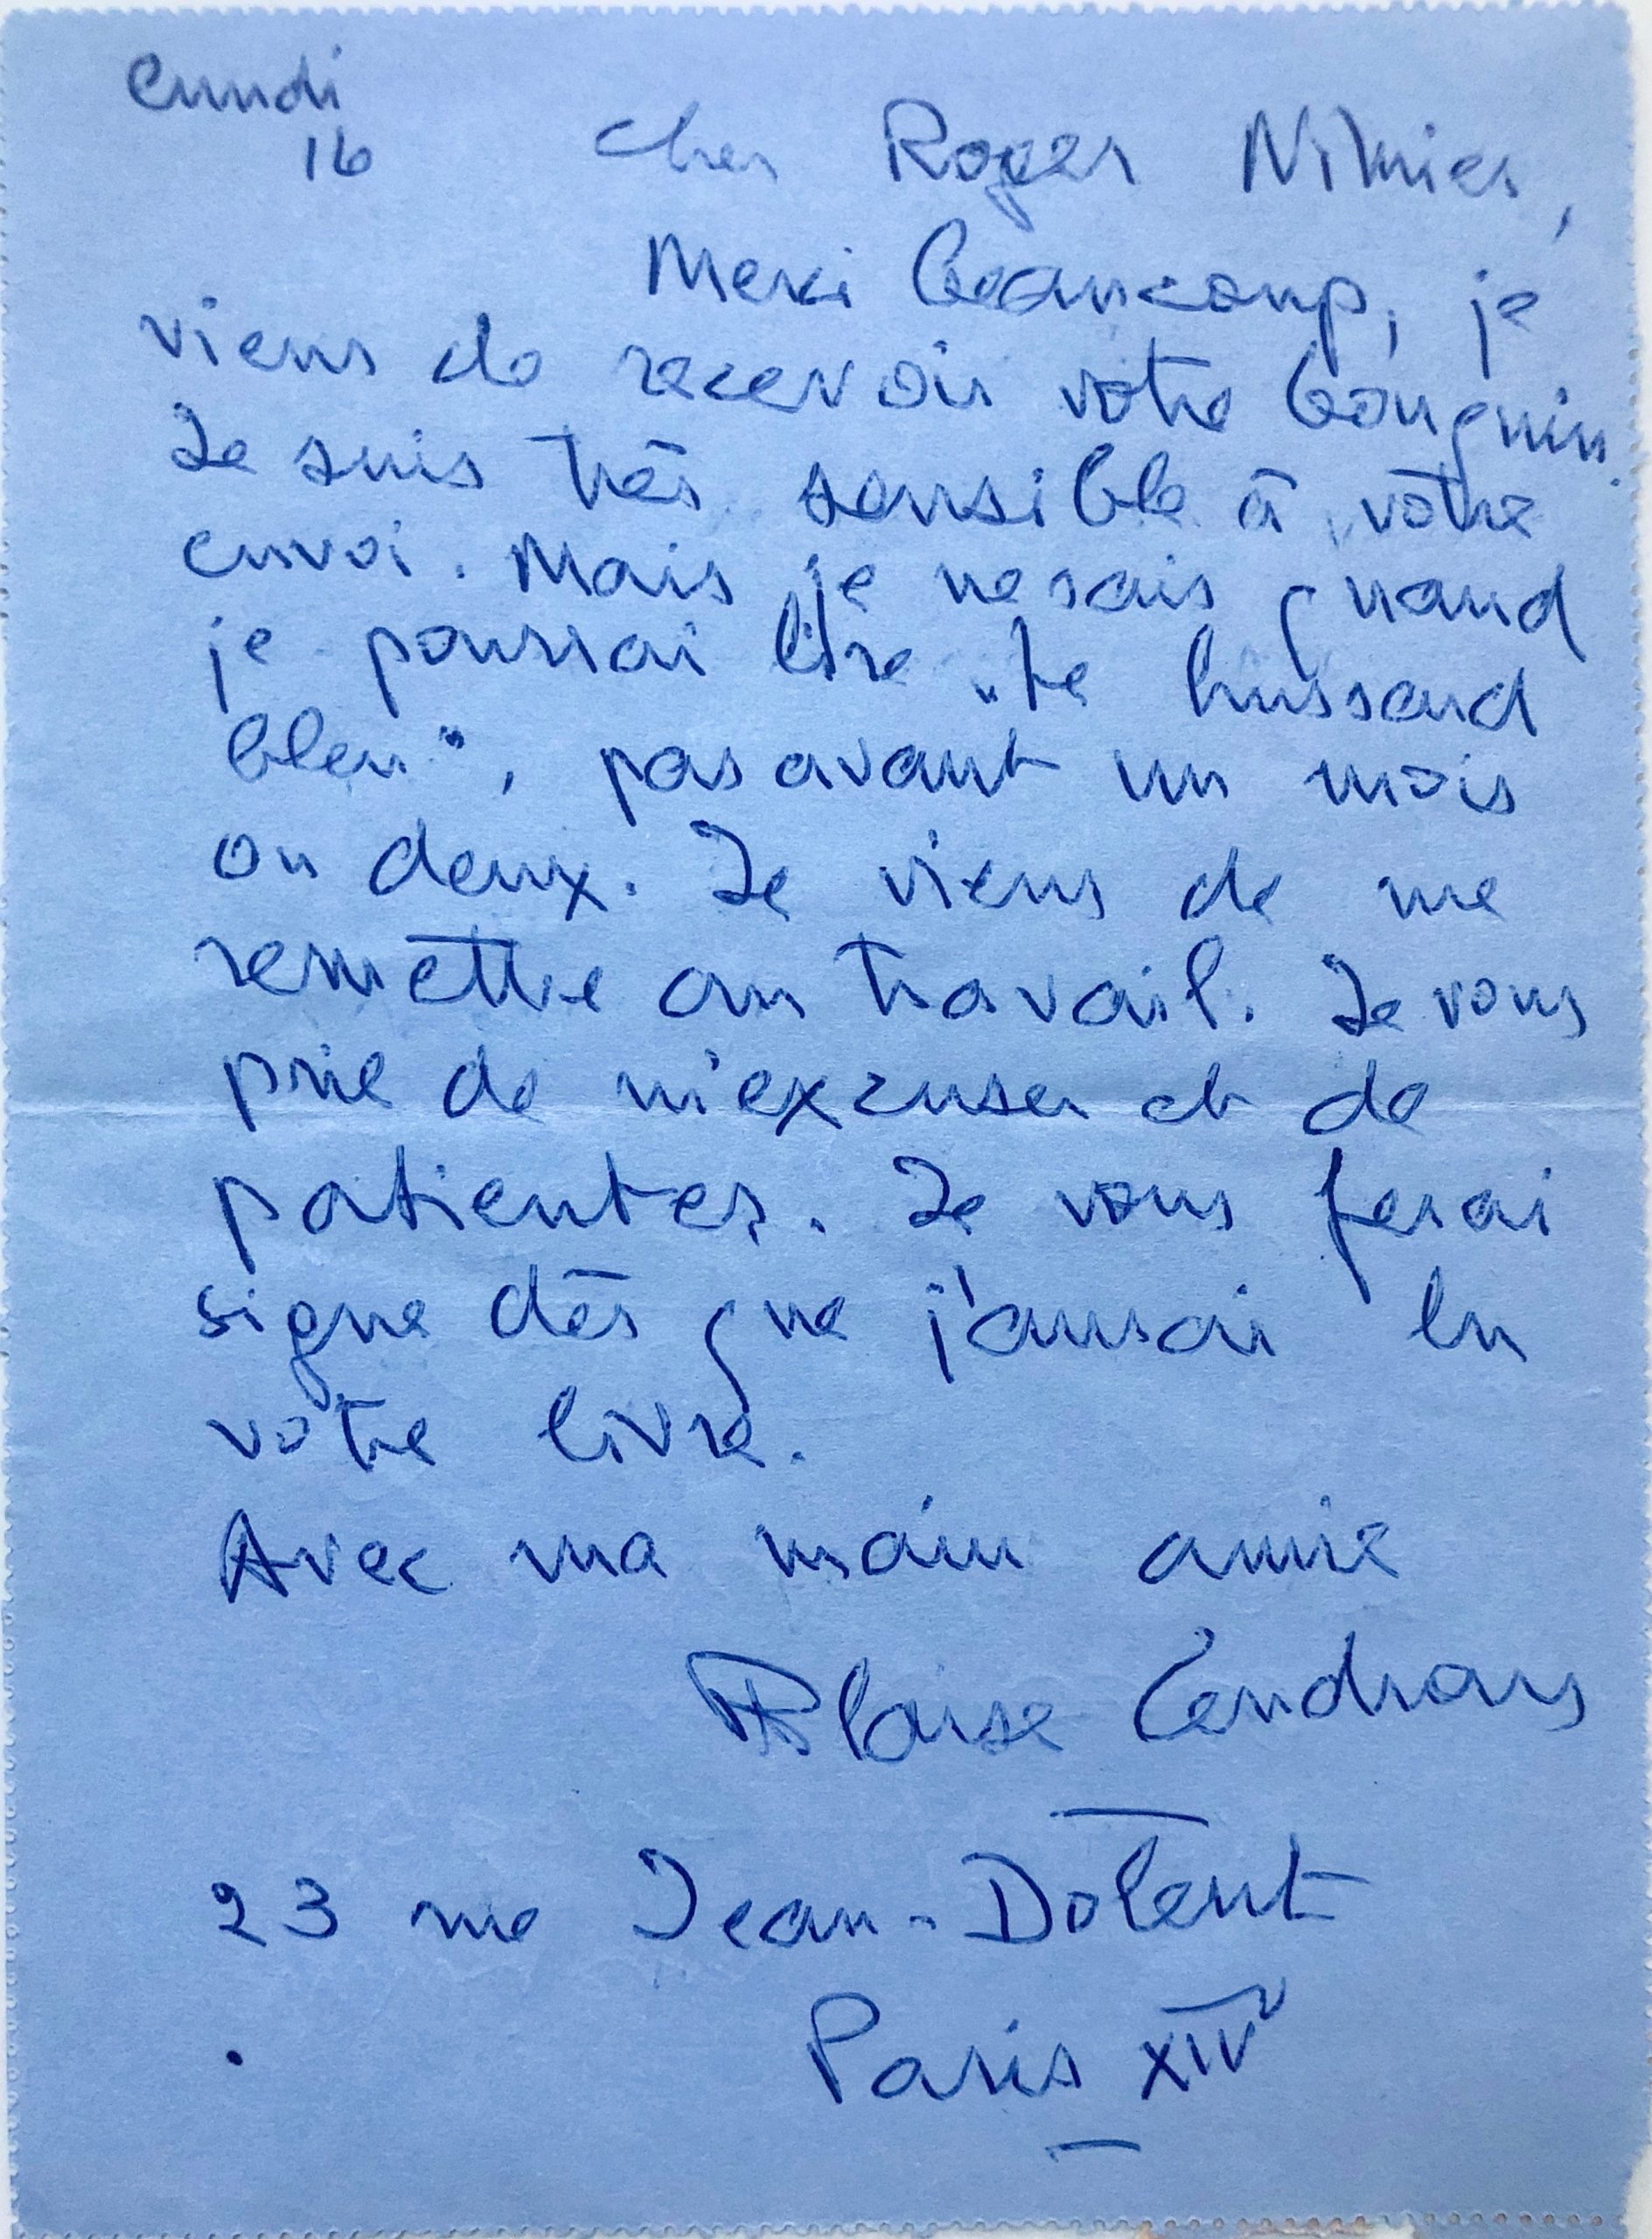 Lundi
16
Cher Roger Nimier,
Merci beaucoup, je
viens de recevoir votre bouquin.
Je suis très sensible à votre
envoi. Mais je ne sais quand
je pourrai lire "Le hussard
bleu", pas avant un mois
ou deux. Je viens de me
remettre au travail. Je vous
prie de m'excuser et de
patienter. Je vous ferai
signe dès que j'aurai lu
votre livre.
Avec ma main amie
Blaise Cendrars
23 rue Jean-Dolent
Paris XIVe